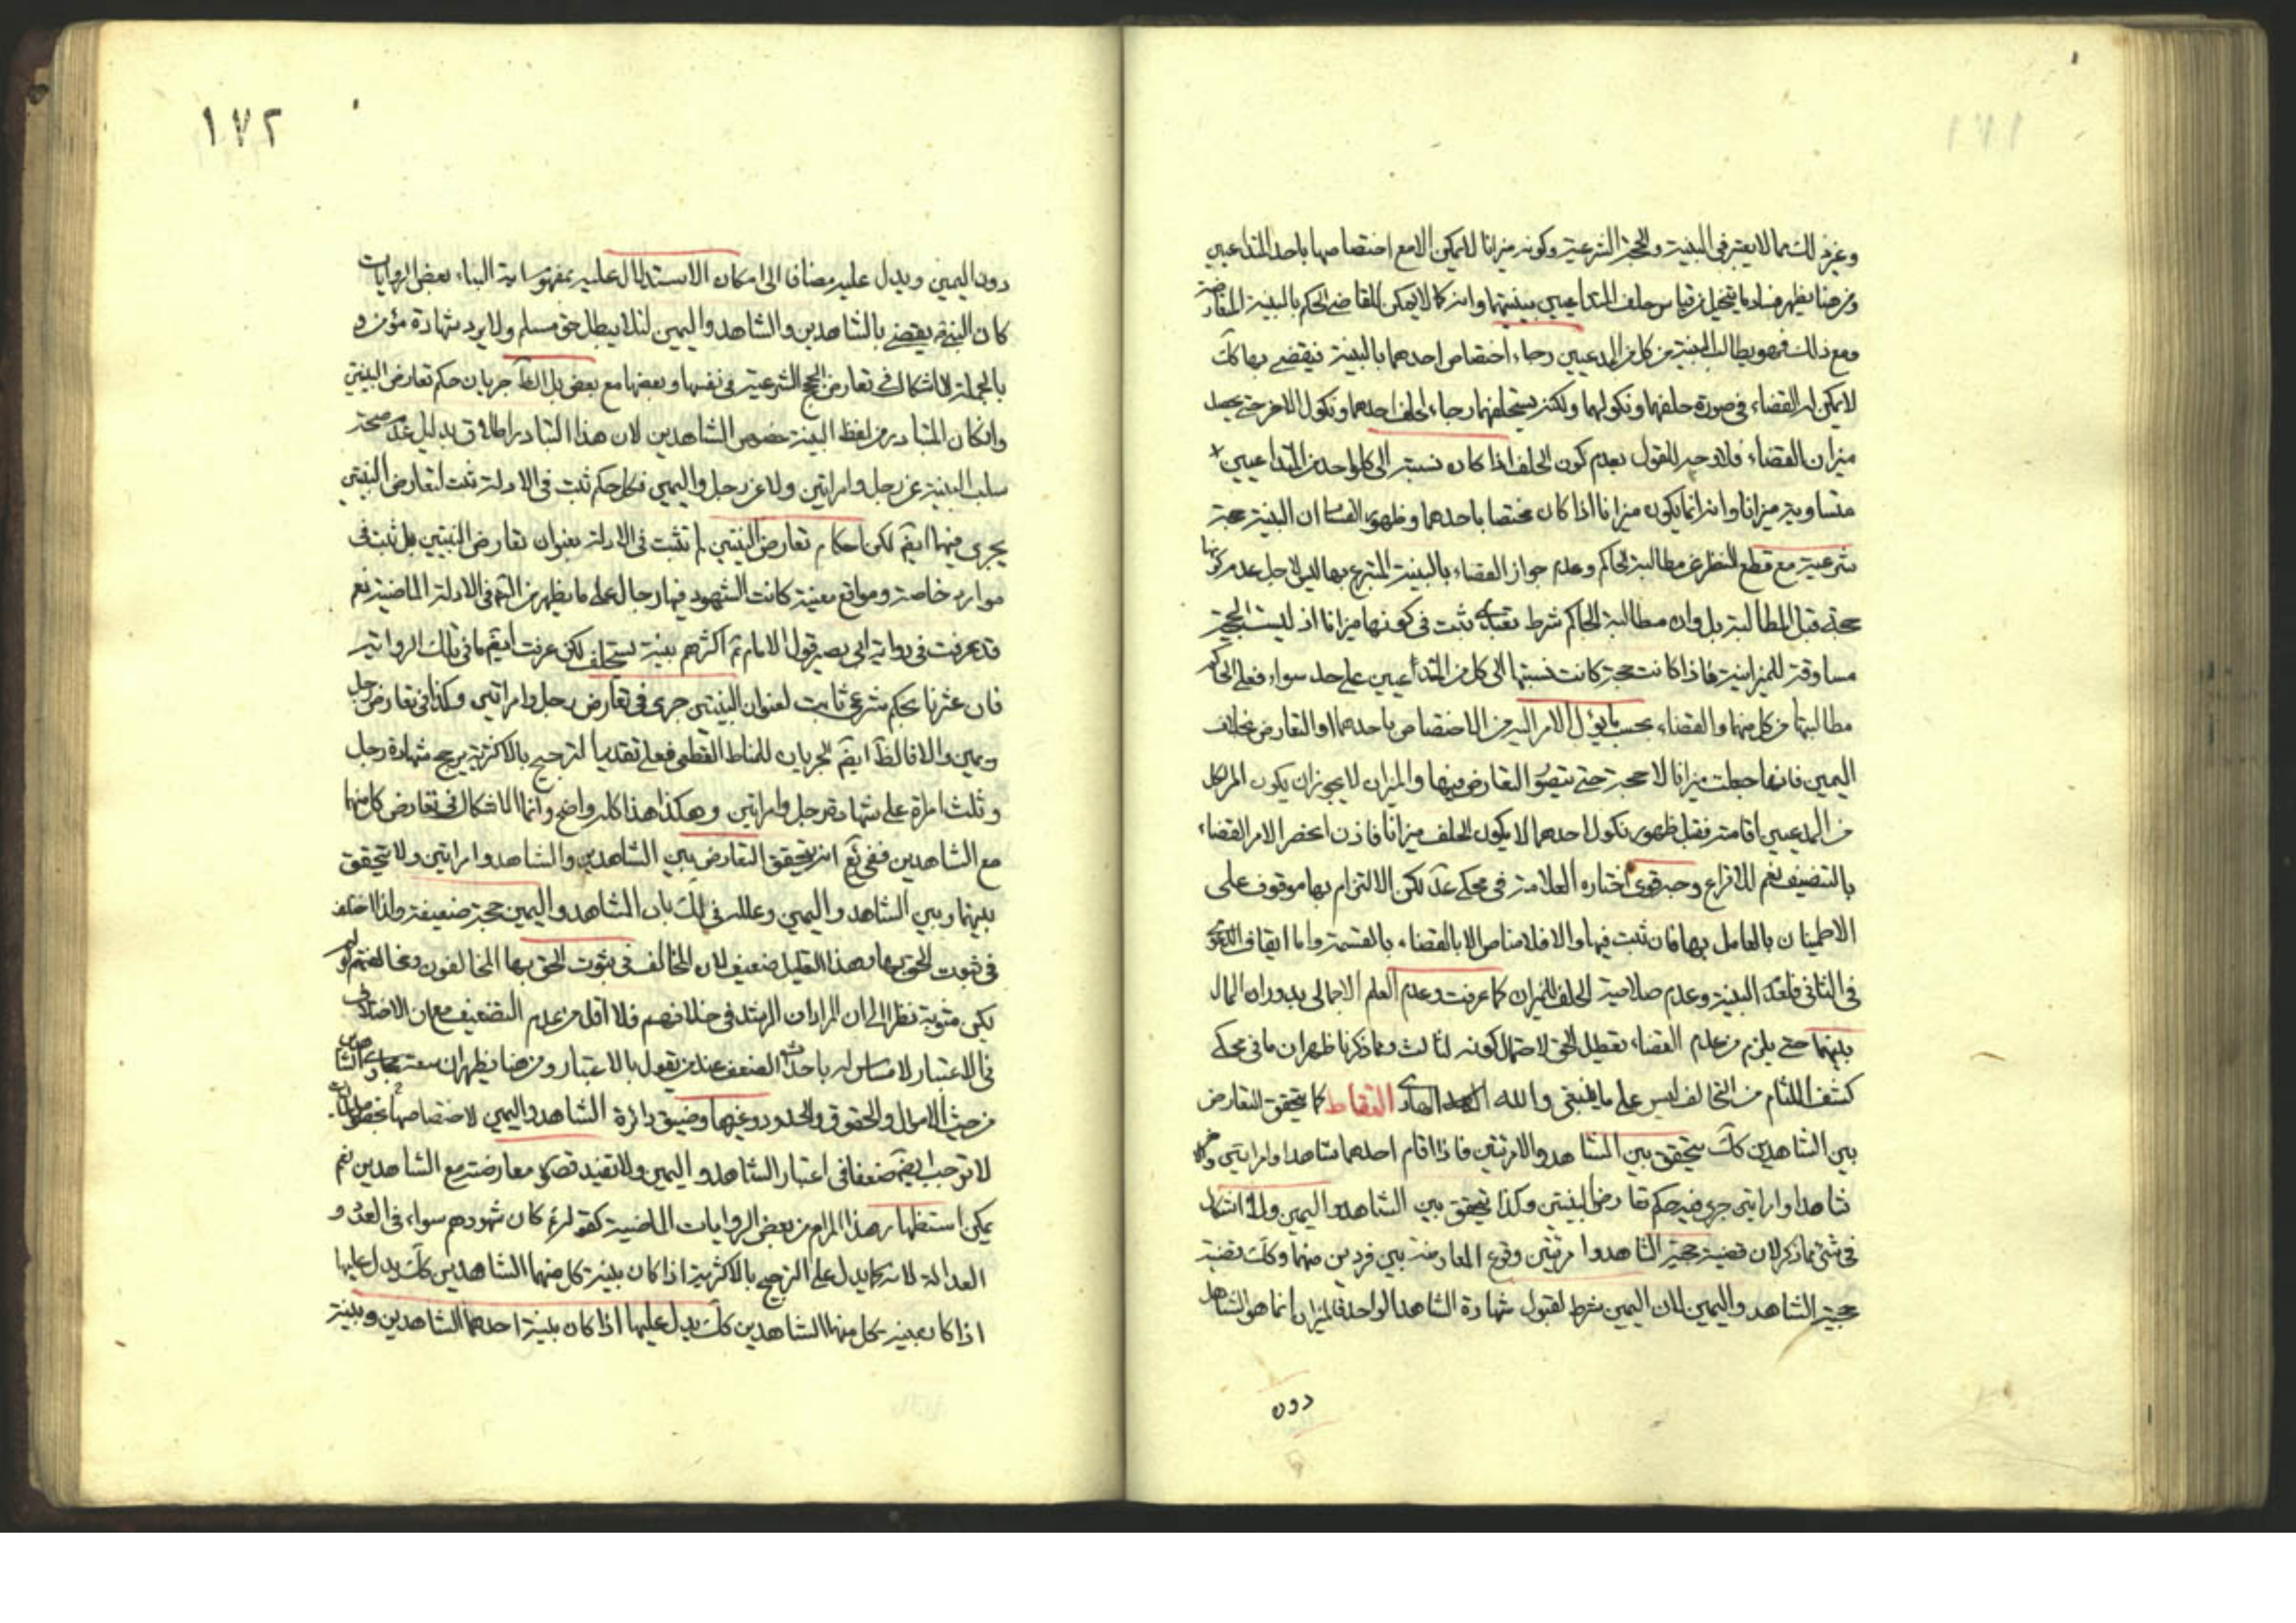 وغير ذلك مما لا يعتبر في البينة والحجة الشرعية وكونه ميزانا لا يمكن الا مع اختصاصها باحد المتداعيين
ومن هنا يظهر فساد ما يتخيل من قياس حلف المتداعيين ببينتهما وانه كما لا يمكن للقاضي الحكم بالبينة المتعارضة
ومع ذلك فهو يطالب البينة من كل من المدعيين رجاء اختصاص احدهما بالبينة فيقضي بها كك
لا يمكن له القضاء في صورة حلفهما ونكولهما ولكنه يستحلفهما رجاء لحلف احدهما ونكول الاخر حتى يحصل
ميزان القضاء فلا وجه للقول بعدم كون الحلف اذا كان نسبته الى كل واحد من المتداعيين
متساوية ميزانا وانه انما يكون ميزانا اذا كان مختصا باحدهما وظهور الفساد ان البينة حجة
شرعية مع قطع النظر عن مطالبة الحاكم وعدم جواز القضاء بالبينة المتبرع بها ليس لاجل عدم كونها
حجة قبل المطالبة بل وان مطالبة الحاكم شرط تعبدي ثبت في كونها ميزانا اذ ليست الحجية
مساوقة للميزانية فاذا كانت حجة كانت نسبتها الى كل من المتداعيين على حد سواء فعلى الحاكم
مطالبتها من كل منهما والقضاء بحسب ما يؤل الامر اليه من الاختصاص باحدهما او التعارض بخلاف
اليمين فانها جعلت ميزانا لا حجة حتى يتصور التعارض فيها والميزان لا يجوز ان يكون امر لكل
من المدعيين اقامته فقبل ظهور نكول احدهما لا يكون الحلف ميزانا فاذن انحصر الامر القضاء
بالتنصيف نعم للاقراع وجه قوي اختاره العلامة في محكي عد لكن الالتزام بها موقوف على
الاطمينان بالعامل بها فان ثبت فيها والا فلا مناص الا بالقضاء بالقسمة واما ايقاف الدعوى
في الثاني فلفقد البينة وعدم صلاحية الحلف للميزان كما عرفت وعدم العلم الاجمالي بدوران المال
بينهما حتى يلزم من عدم القضاء تعطيل الحق لاحتمال كونه لثالث ومما ذكرنا ظهر ان ما في محكي
كشف اللثام من التحالف ليس على ما ينبغي والله الهادي التقاط كما يتحقق التعارض
بين الشاهدين كك يتحقق بين الشاهد والامرئتين فاذا اقام احدهما شاهدا وامراتين والاخر
شاهدا وامراتين جرى فيه حكم تعارض البينتين وكذا يتحقق بين الشاهد واليمين ولا اشكال
في شئ مما ذكر لان قضية حجية الشاهد وامرئتين وقوع المعارضة بين فردين منهما وكك قضية
حجية الشاهد واليمين لان اليمين شرط لقبول شهادة الشاهد الواحد فالميزان انما هو الشاهد
دون
١٧٢
دون اليمين ويدل عليه مضافا الى امكان الاستدلال عليه بمفهوم اية النباء بعض الروايات
كان النبي يقضي بالشاهدين والشاهد واليمين لئلا يبطل حق مسلم ولا يرد شهادة مؤمن و
بالجملة لا اشكال في تعارض الحجج الشرعية في نفسها وبعضها مع بعض بل الظ جريان حكم تعارض البينتين
وانكان المتبادر من لفظ البينة خصوص الشاهدين لان هذا التبادر اطلاقي بدليل عدم صحة
سلب البينة عن رجل وامراتين ولا عن رجل واليمين فكل حكم ثبت في الادلة ثبت لتعارض البينتين
يجري فيها ايض لكن احكام تعارض البينتين لم تثبت في الادلة بعنوان تعارض البينتين بل ثبت في
موارد خاصة ومواقع معينة كانت الشهود فيها رجال على ما يظهر من التامل في الادلة الماضية نعم
قد عرفت في رواية ابي بصير قول الامام ثم اكثرهم بينة يستحلف لكن عرفت ايض ما في تلك الرواية
فان عثرنا بحكم شرعي ثابت لعنوان البينتين جرى في تعارض رجل وامراتين وكذا في تعارض رجل
ويمين والا فالظ ايض الجريان للمناط القطعي فعلى تقديم الترجيح بالاكثرية يرجح شهادة رجل
وثلث امراة على شهادة رجل وامراتين وهكذا هذا كله واضح وانما الاشكال في تعارض كل منهما
مع الشاهدين ففي يع انه يتحقق التعارض بين الشاهدين والشاهد وامراتين ولا يتحقق
بينهما وبين الشاهد واليمين وعلله في لك بان الشاهد واليمين حجة ضعيفة ولذا اختلف
في ثبوت الحق بها وهذا التعليل ضعيف لان المخالف في ثبوت الحق بها المخالفون ومخالفتهم لو لم
يكن مقوية نظرا الى ان المراد ان الرشد في خلافهم فلا اقل من عدم التضعيف مع ان الاختلاف
في الاعتبار لا مساس له باحداث الضعف عند من يقول بالاعتبار ومن هنا يظهر ان سعة مجاري الشاهدين
من حيث الاموال والحقوق والحدود وغيرها وضيق دائرة الشاهد واليمين لاختصاصها
لا توجب ايض ضعفا في اعتبار الشاهد واليمين ولا تفيد قصور معارضته مع الشاهدين نعم
يمكن استظهار هذا المرام من بعض الروايات الماضية كقوله كان شهودهم سواء في العدد و
العدالة لانه كما يدل على الترجيح بالاكثرية اذا كان بينة كل منهما الشاهدين كك يدل عليها
اذا كان بينة كل منهما الشاهدين كك يدل عليها اذا كان بينة احدهما الشاهدين وبينة